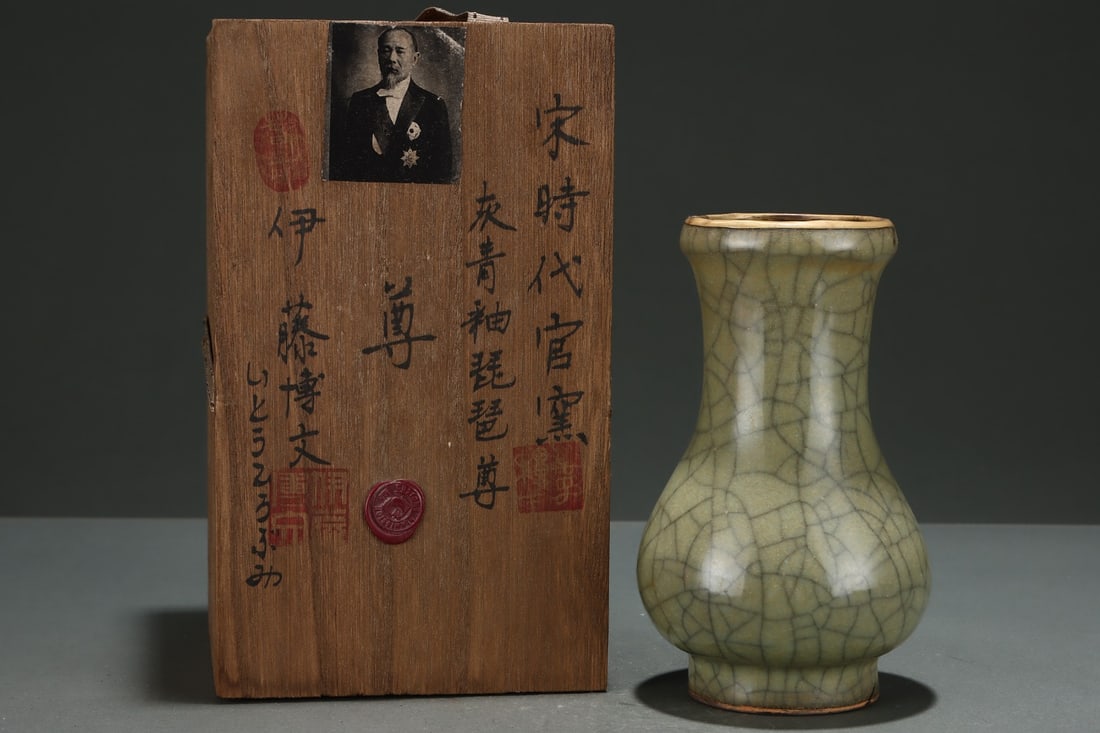 宋時代官窯
灰青釉琵琶尊
尊
伊藤博文
いとうひろぶみ